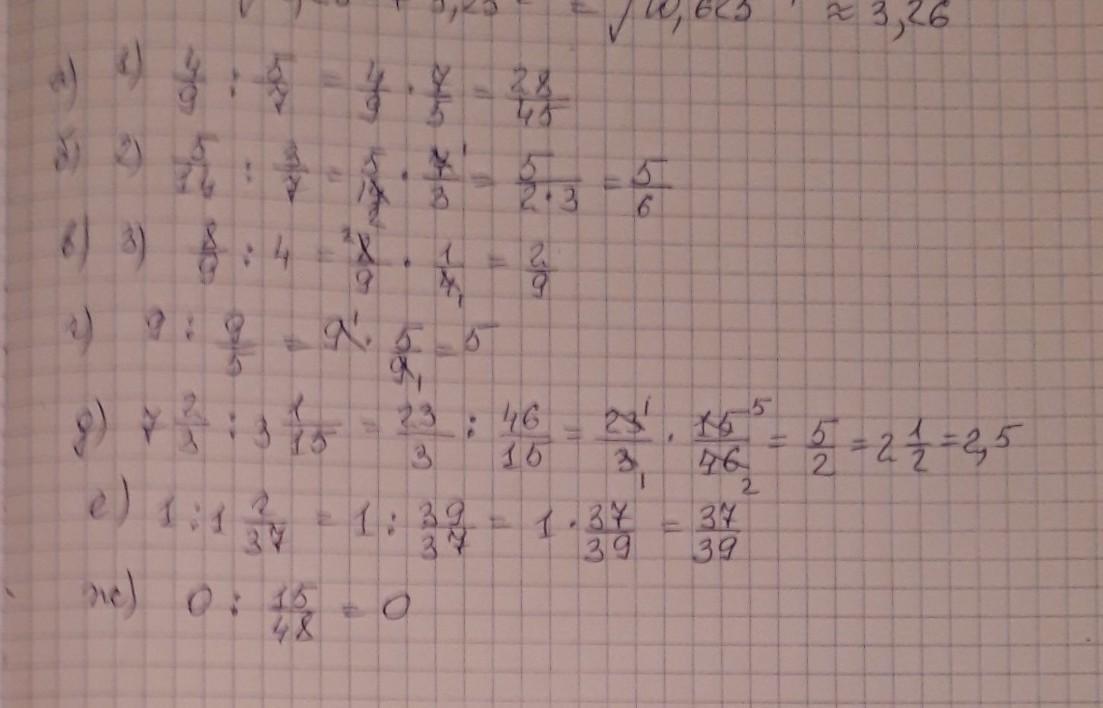 = √10,625 ≈ 3,26
а) 1) 4/9 : 5/7 = 4/9 · 7/5 = 28/45
б) 2) 5/14 : 3/7 = 5/14 2 · 7/3 1 = 5/2·3 = 5/6
в) 3) 8/9 : 4 = 2 8/9 · 1/4 1 = 2/9
г) 9 : 9/5 = 9 1 · 5/9 1 = 5
д) 7 2/3 : 3 1/15 = 23/3 : 46/15 = 23 1/3 1 · 15 5/46 2 = 5/2 = 2 1/2 = 2,5
е) 1 : 1 2/37 = 1 : 39/37 = 1 · 37/39 = 37/39
ж) 0 : 15/48 = 0